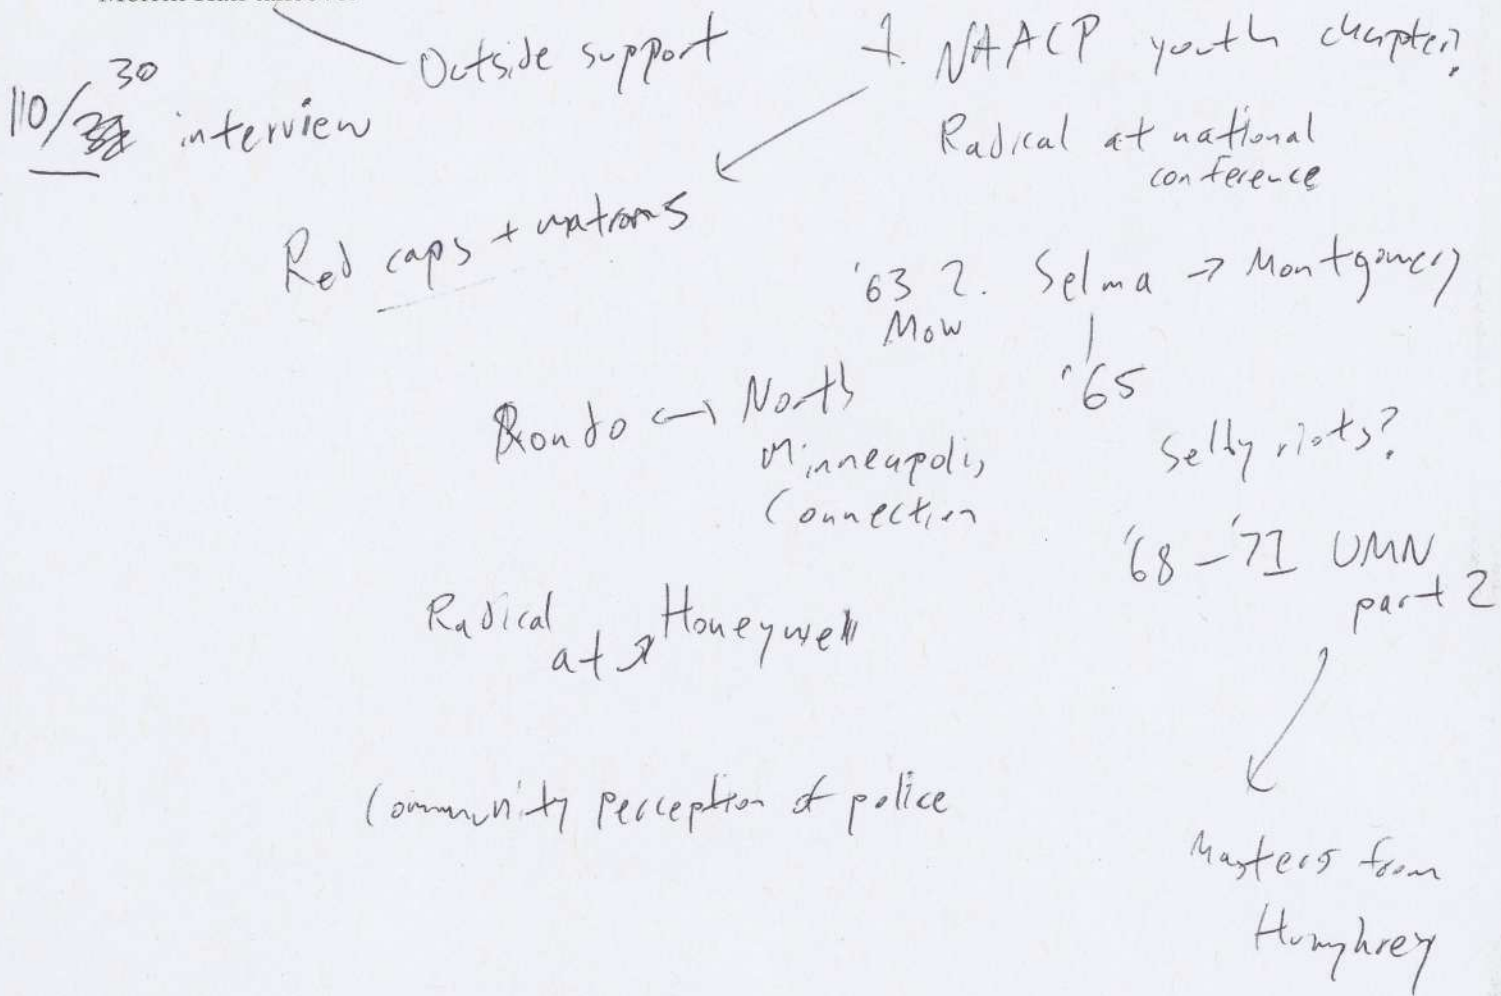 Outside support
1. NAACP youth chapter?
110/30 interview
Radical at national
conference
Red caps + matrons
'63 2. Selma → Montgomery
MOW
'65
Rondo ↔ North
Minneapolis
Connection
Selby riots?
'68-'71 UMN
part 2
Radical
at Honeywell
Community perception of police
Masters from
Humphrey